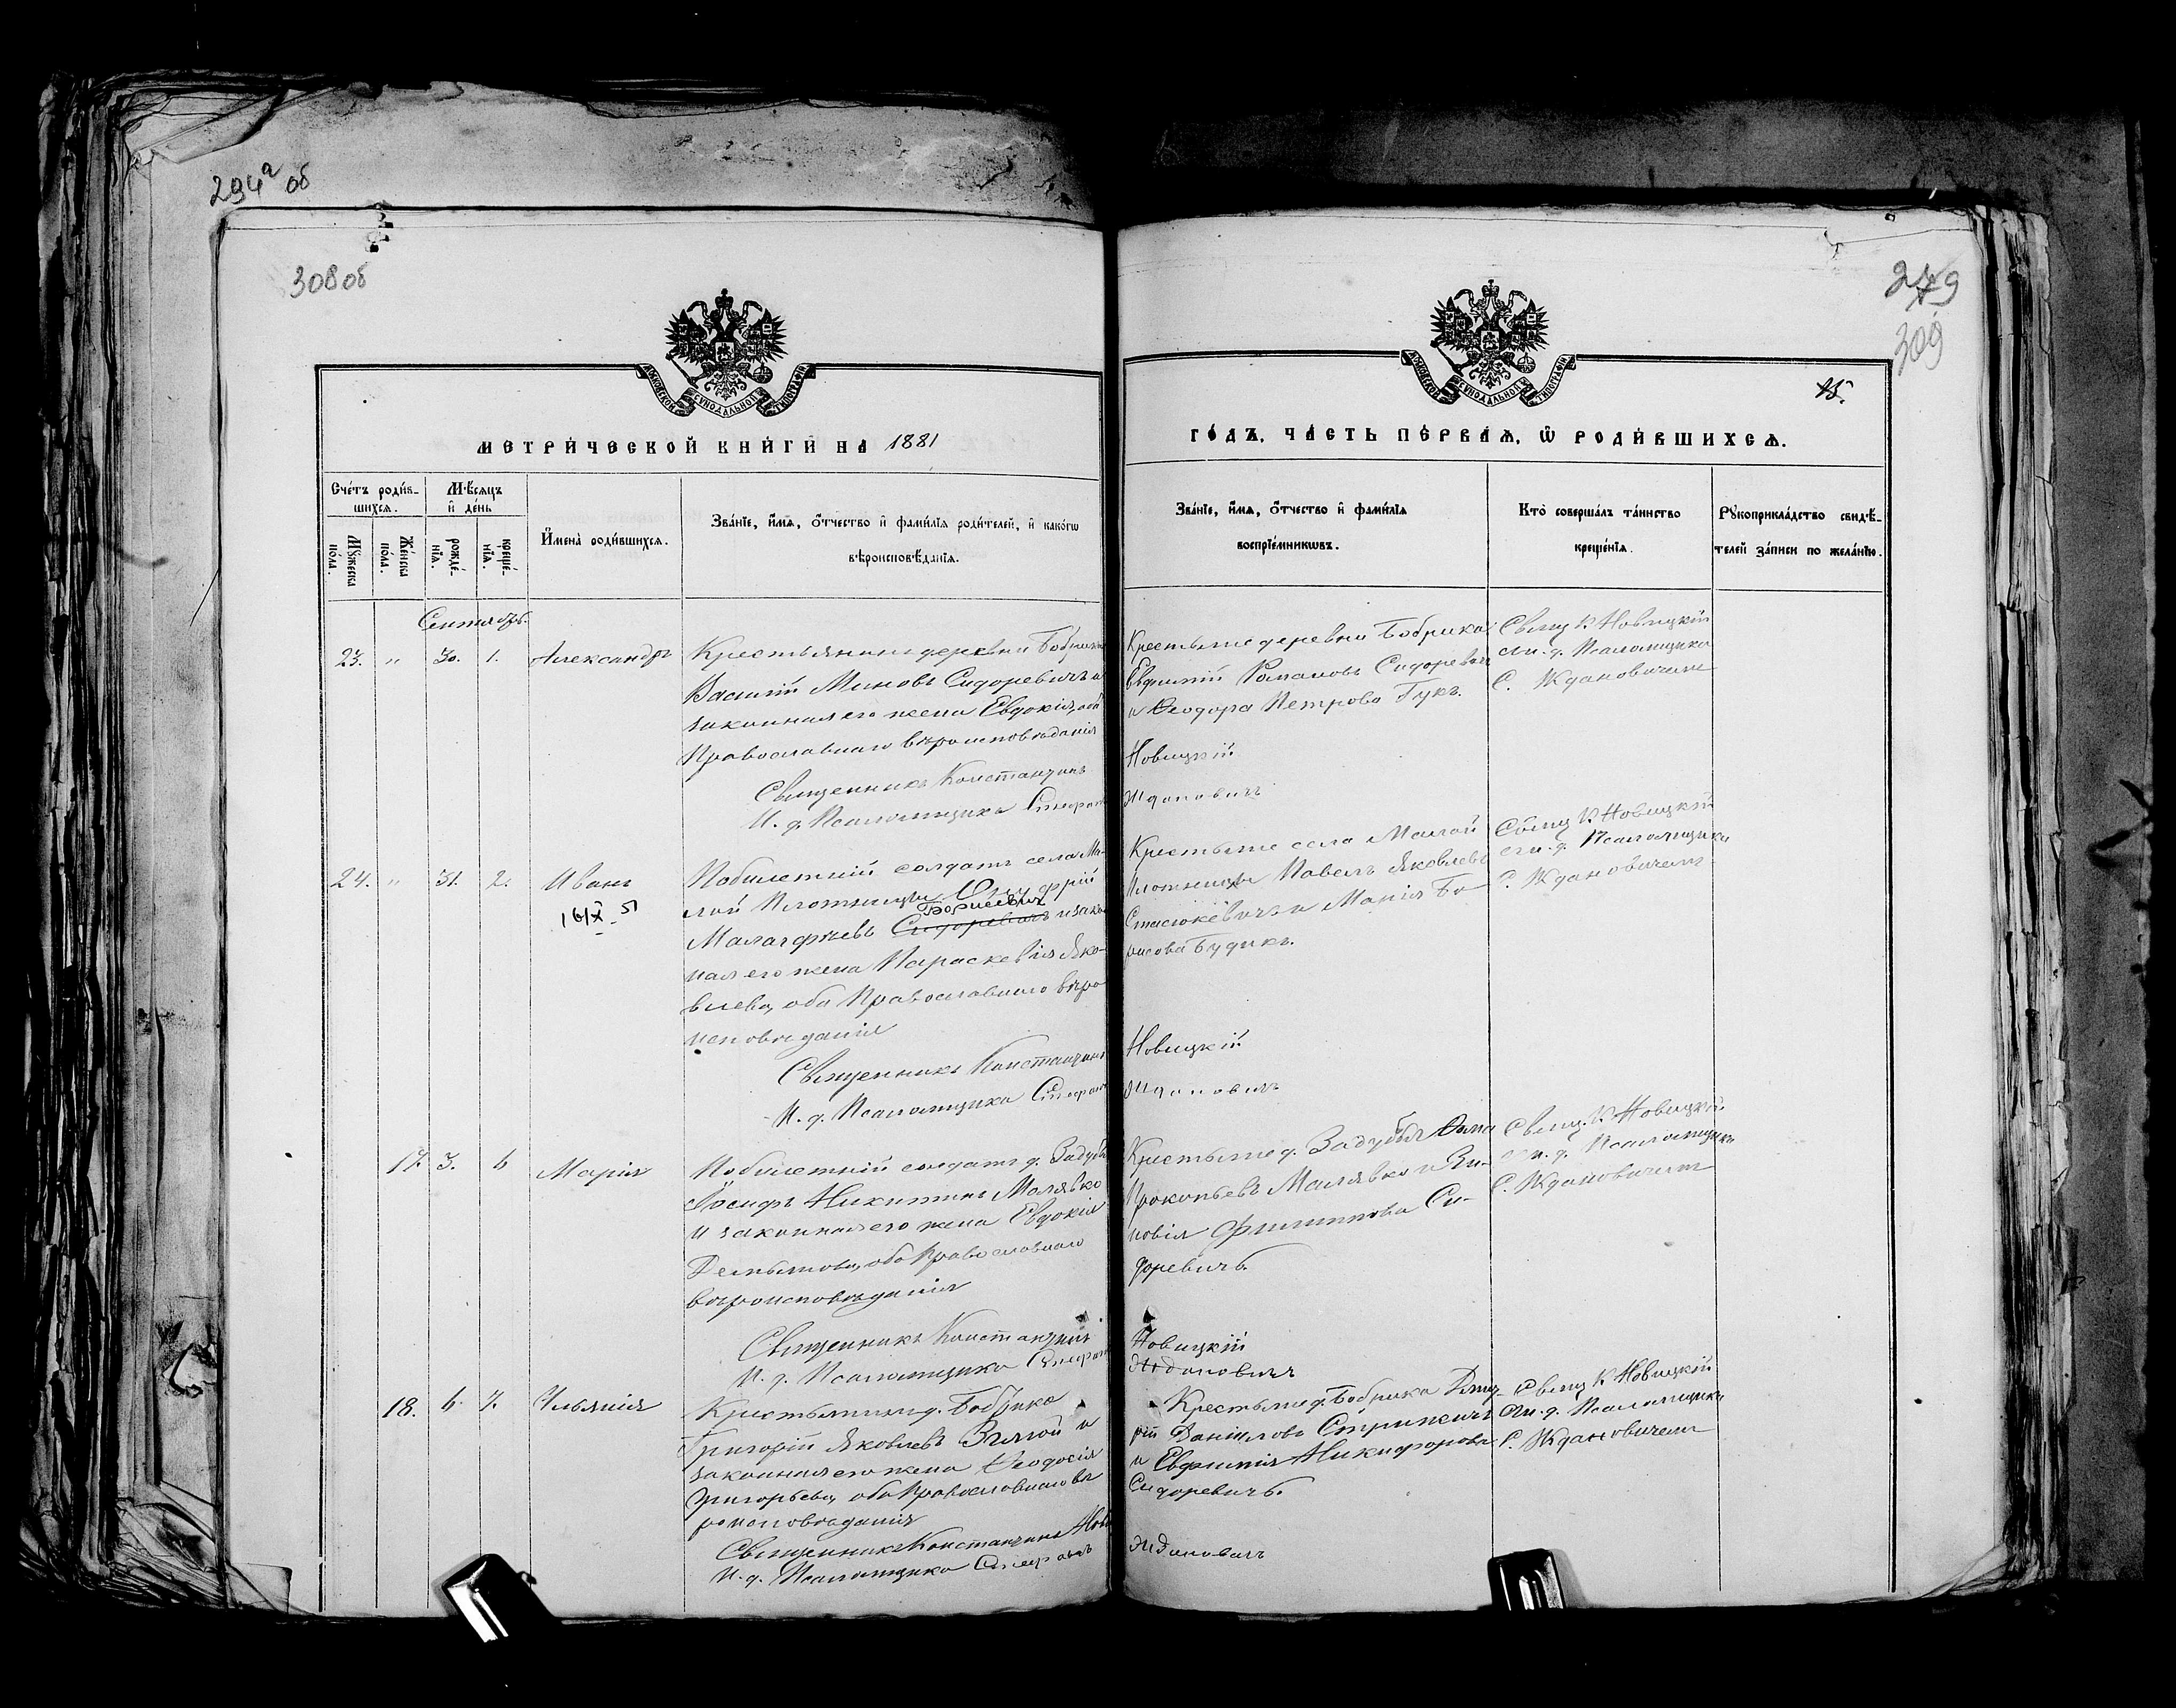 294а об
308 об
279
309
15.
МОСКОВСКОЙ СѴНОДАЛЬНОЙ ТИПОГРАФІИ
МОСКОВСКОЙ СѴНОДАЛЬНОЙ ТИПОГРАФІИ
МЕТРИ́ЧЕСКОЙ КНИ́ГИ НА 1881
ГО́ДЪ, ЧА́СТЬ ПЕ́РВАЯ, Ѡ РОДИ́ВШИХСЯ.
Сче́тъ роди́в-
шихся.
Мѣ́сяцъ
и де́нь
Му́жеска
по́ла.
Же́нска
по́ла.
рожде́-
нїя.
креще́-
нїя.
Имена̀ роди́вшихся.
Зва́нїе, и́мя, о́тчество и фами́лїя роди́телей, и како́гѡ
вѣроисповѣ́данїя.
Зва́нїе, и́мя, о́тчество и фами́лїя
воспрїе́мникѡвъ.
Кто̀ соверша́лъ та́инство
креще́нїя.
Рꙋкоприкла́дство свидѣ́-
телей за́писи по жела́нїю.
Сентябрь.
23. " 30. 1. Александръ
Крестьянинъ деревни Бобрика
Василій Миновъ Сидоревичъ и
законная его жена Евдокія, оба
Православнаго вѣроисповѣданія
Священникъ Константинъ
И. д. Псаломщика Стефанъ
Крестьяне деревни Бобрика
Евфимій Романовъ Сидоревичъ
и Ѳеодора Петрова Гукъ.
Новицкій
Ждановичъ
Свящ К Новицкій
съ и. д. Псаломщика
С. Ждановичемъ
24. " 31. 2. Иванъ
16/X 51
Побилетній солдатъ села Ма-
лой Плотницы Онуфрій
Борисевичъ
Малафѣевъ Сидоревичъ и закон
ная его жена Параскевія Яко-
влева, оба Православнаго вѣро
исповѣданія
Священникъ Константинъ
И. д. Псаломщика Стефанъ
Крестьяне села Малой
Плотницы Павелъ Яковлевъ
Стасюкевичъ и Марія Бо-
рисова Будикъ.
Новицкій
Ждановичъ
Свящ К Новицкій
съ и. д. Псаломщика
С. Ждановичемъ
17. 3. 6 Марія
Побилетній солдатъ д. Задубья
Іосифъ Никитинъ Малявко
и законная его жена Евдокія
Демьянова, оба Православнаго
вѣроисповѣданія
Священникъ Константинъ
И. д. Псаломщика Стефанъ
Крестьяне д. Задубья Ѳома
Прокопьевъ Малявко и Зи-
новія Филиппова Си-
доревичъ.
Новицкій
Ждановичъ
Свящ. К Новицкій
съ и. д. Псаломщика
С. Ждановичемъ
18. 6. 7. Ульянія
Крестьянинъ д. Бобрика
Григорій Яковлевъ и
законная его жена Ѳеодосія
Григорьева, оба Православнаго вѣ
роисповѣданія
Священникъ Константинъ Нови
И. д. Псаломщика Стефанъ
Крестьяне д. Бобрика Дмит-
рій Даніиловъ
и Евфимія Никифорова
Сидоревичъ.
Ждановичъ
Свящ К Новицкій
съ и. д. Псаломщика
С. Ждановичемъ